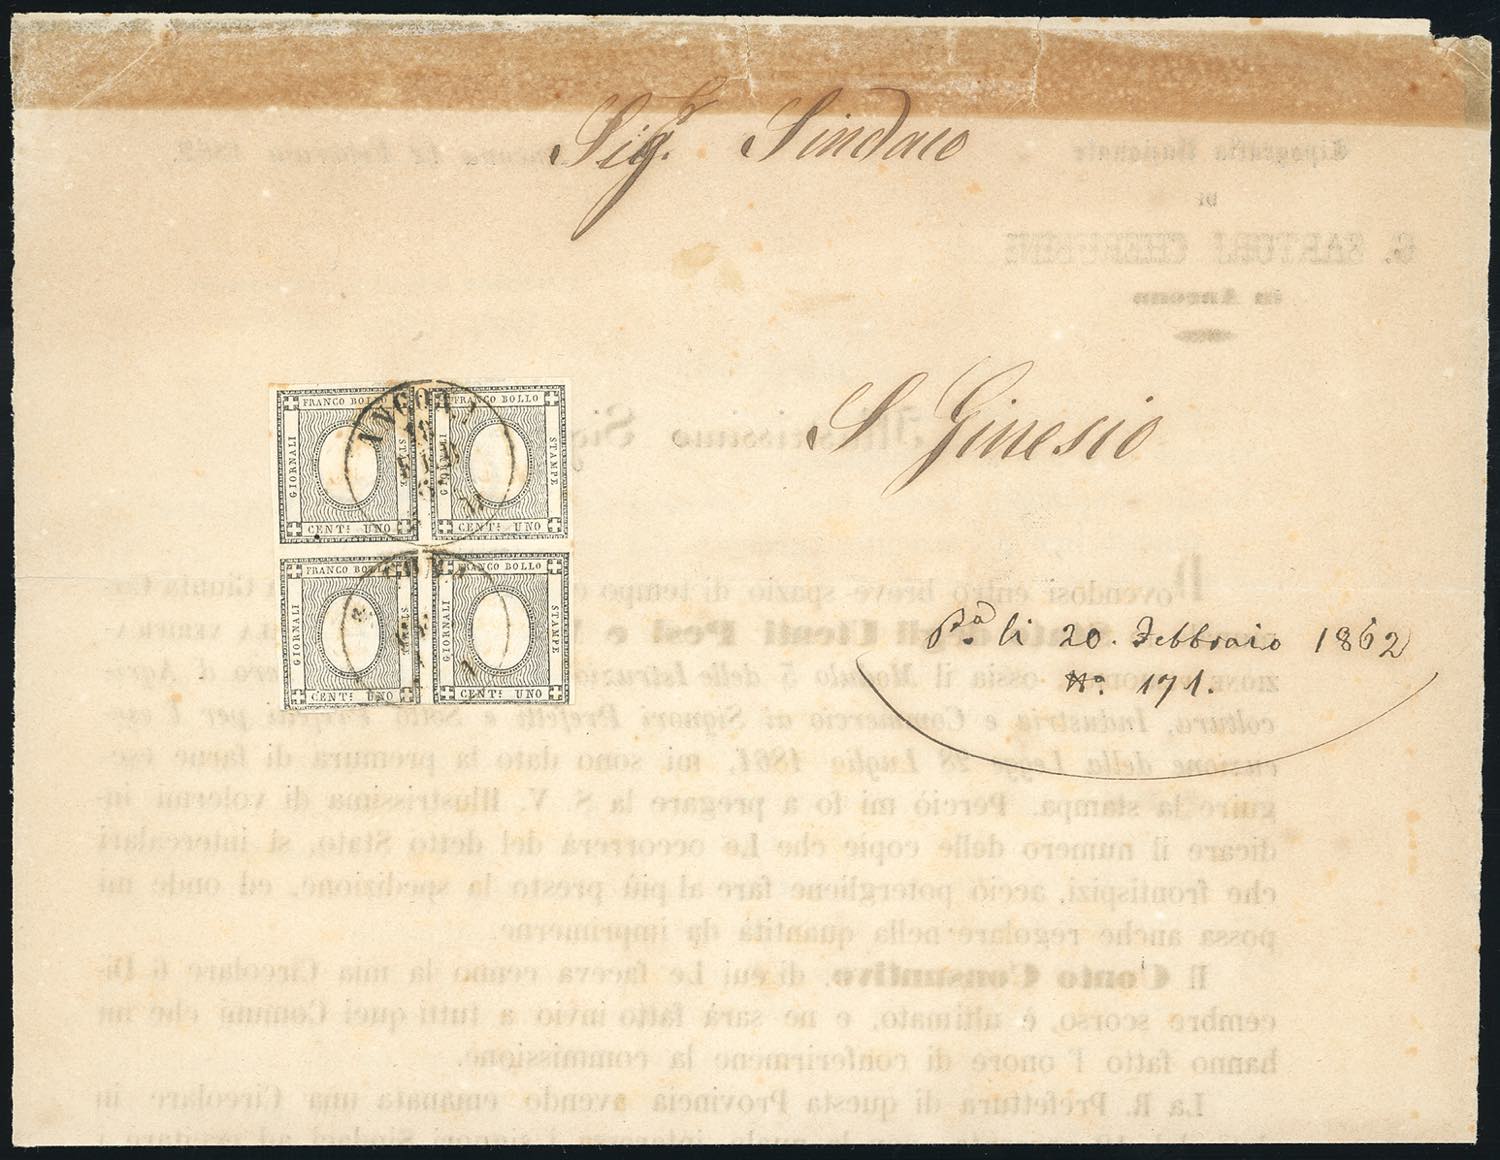 Sigr. Sindaco
S Ginesio
FRANCO BOLLO
GIORNALI
STAMPE
CENT: UNO
FRANCO BOLLO
GIORNALI
STAMPE
CENT: UNO
FRANCO BOLLO
GIORNALI
STAMPE
CENT: UNO
FRANCO BOLLO
GIORNALI
STAMPE
CENT: UNO
Pa. li 20. Febbraio 1862
No. 171.
Tipografia Nazionale
DI
G. SARTORJ CHERUBINI
in Ancona
Illustrissimo Sig
Dovendosi entro breve spazio di tempo
Stato degli Utenti Pesi e
ossia il Modulo 5 delle Istruzio
coltura, Industria e Commercio ai Signori Prefetti e Sotto Prefetti per l'ese-
cuzione della Legge 28 Luglio 1861, mi sono dato la premura di farne ese-
guire la stampa. Perciò mi fo a pregare la S. V. Illustrissima di volermi in-
dicare il numero delle copie che Le occorrerà del detto Stato, sì intercalari
che frontispizi, acciò potergliene fare al più presto la spedizione, ed onde mi
possa anche regolare nella quantità da imprimerne.
Il Conto Consuntivo, di cui Le faceva cenno la mia Circolare 6 Di-
cembre scorso, è ultimato, e ne sarà fatto invio a tutti quei Comuni che mi
hanno fatto l'onore di conferirmene la commissione.
La R. Prefettura di questa Provincia avendo emanata una Circolare in